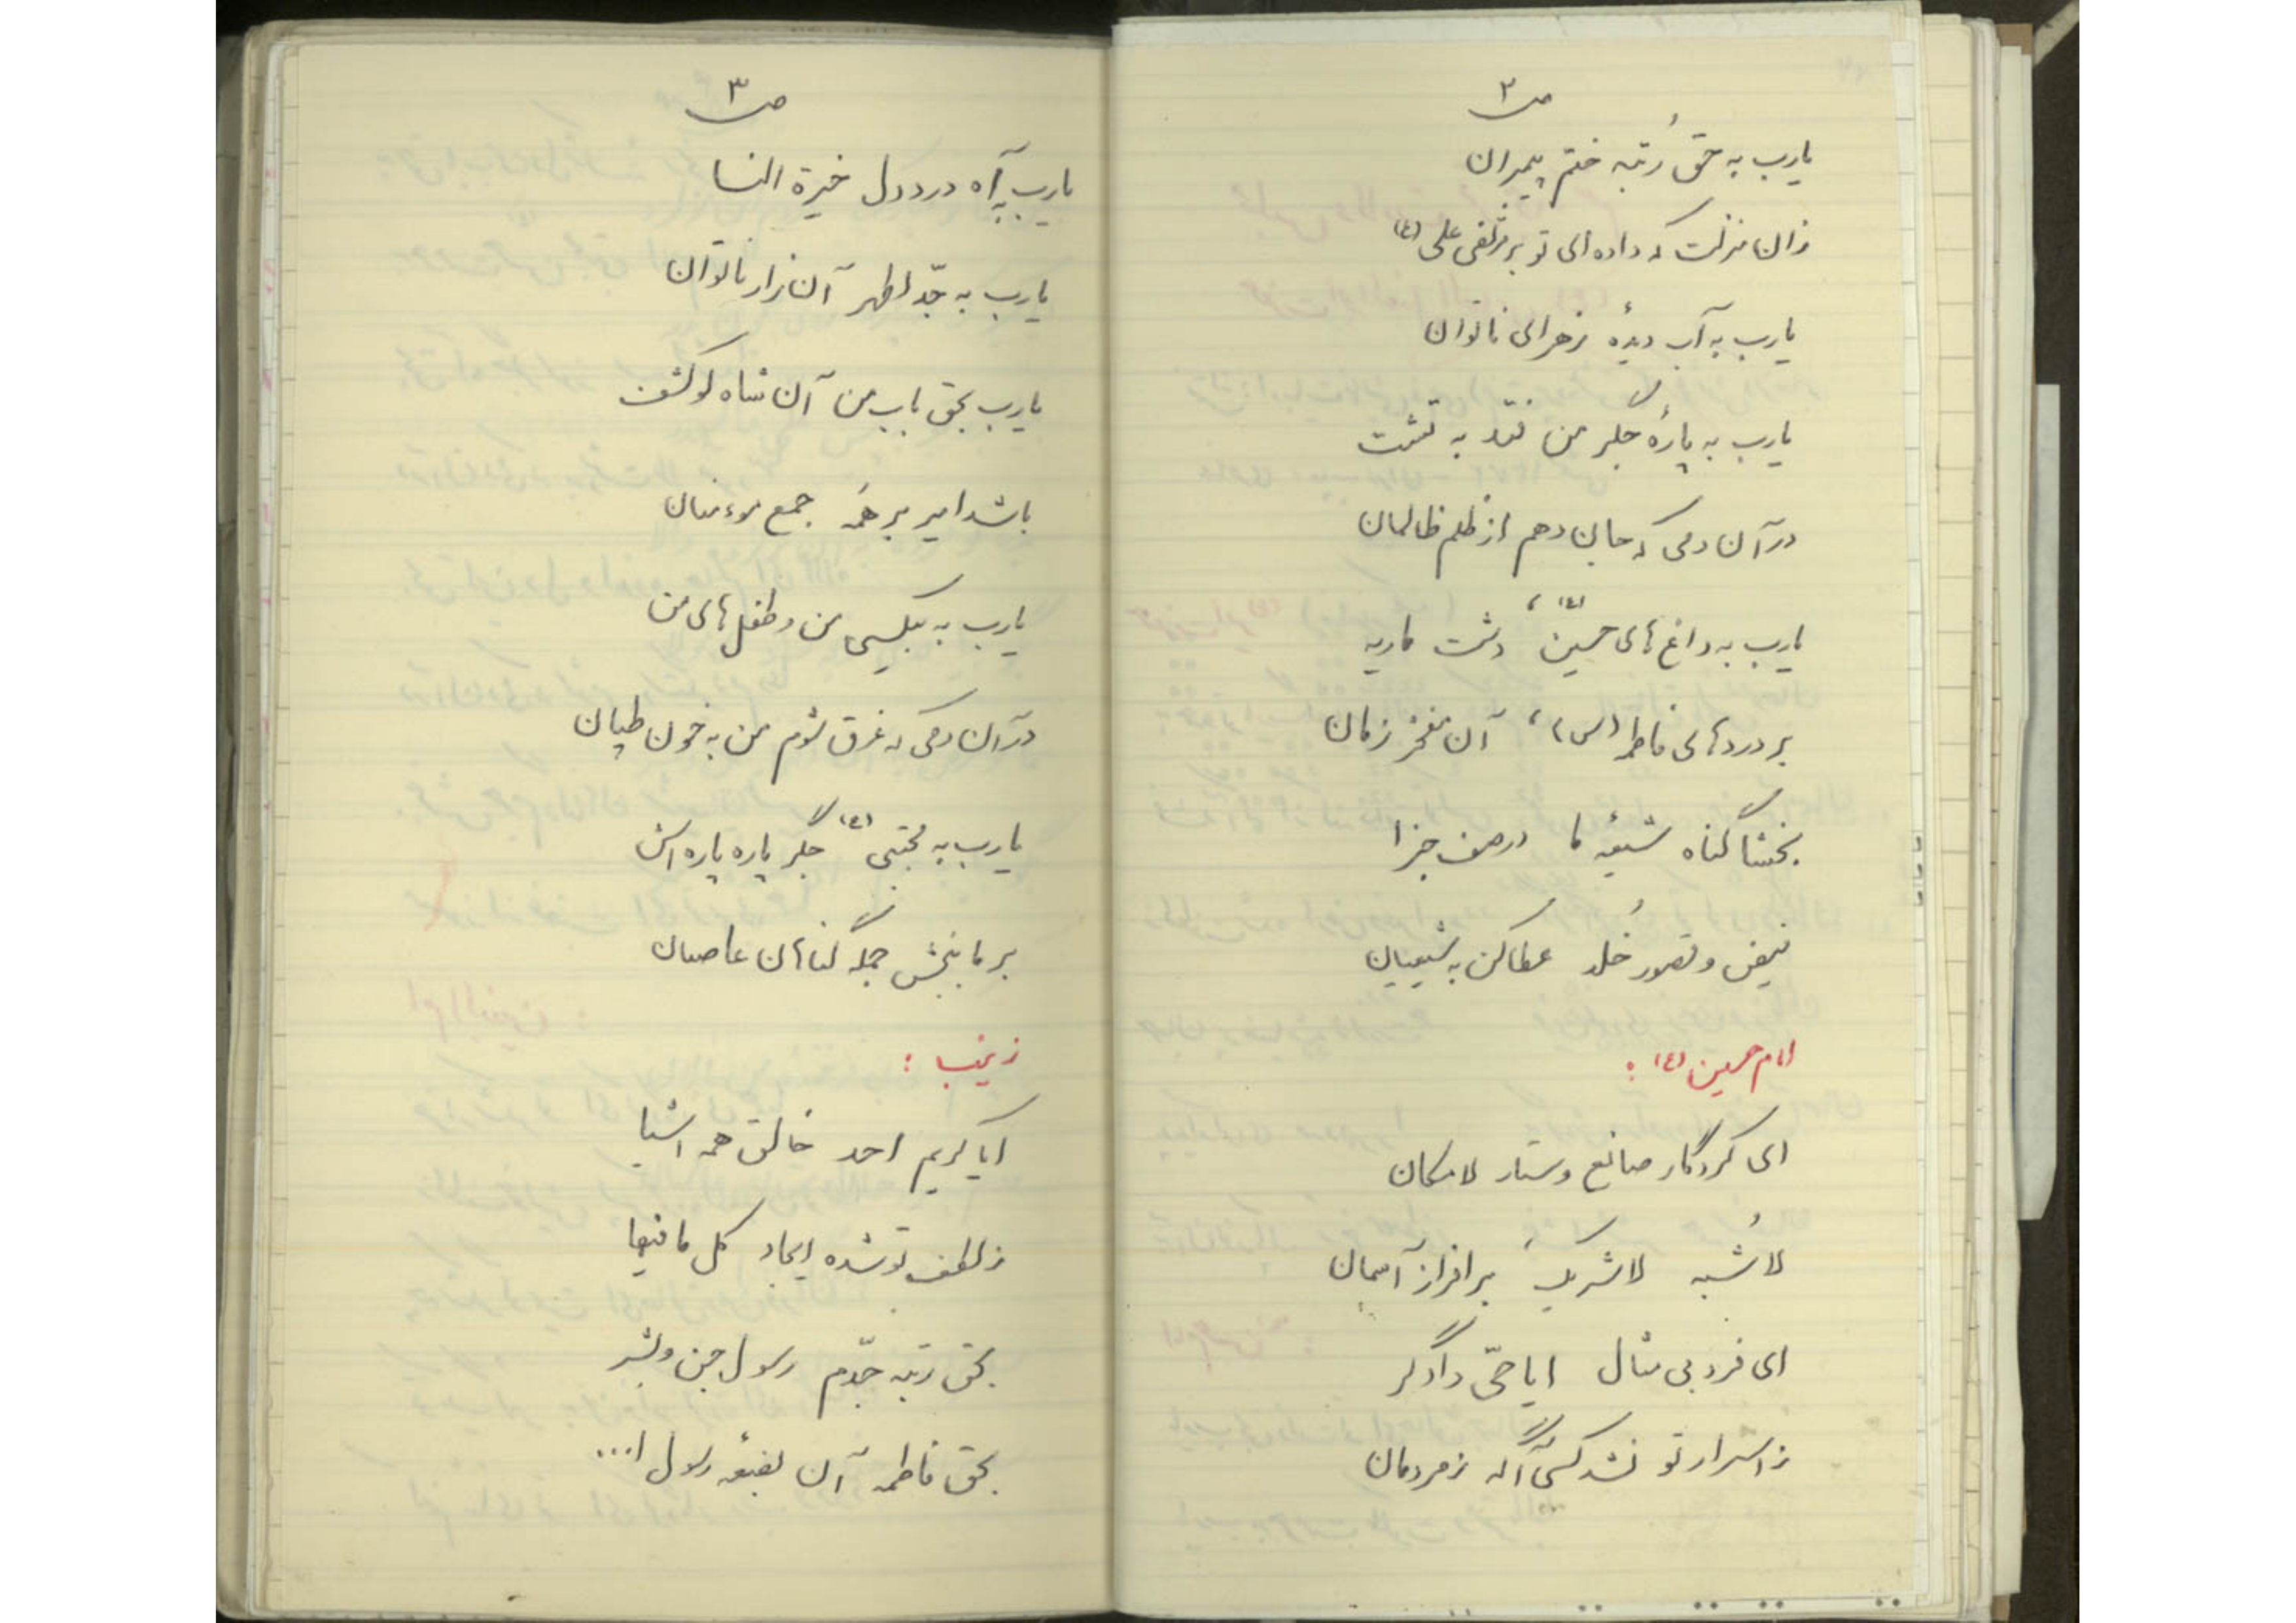 ص ۲
یارب به حق رُتبه ختم پیمبران
زان منزلت که داده ای تو بر مرتضی علی (ع)
یارب به آب دیدهٔ زهرای ناتوان
یارب به پارهٔ جگر من فتد به تشت
در آن دمی که جان دهم از ظلم ظالمان
یارب به داغ های حسین (ع)، دشت ماریه
بر دردهای فاطمه (س)، آن مفخر زمان
بخشا گناه شیعهٔ ما در صف جزا
فیض و قصور خُلد عطا کن به شیعیان
امام حسین (ع) :
ای کردگار صانع و ستار لامکان
لاشُبه لاشریک برافراز آسمان
ای فرد بی مثال ایا حیّ دادگر
ز اسرار تو نشد کسی آگه ز مردمان
ص ۳
یارب به آه درد دل خیرة النسا
یارب به جدّ اطهر آن زار ناتوان
یارب بحق باب من آن شاه لو کشف
باشد امیر بر همه جمع موءمنان
یارب به بیکسی من و طفل های من
در آن دمی که غرق شوم من به خون طپان
یارب به مجتبی (ع) جگر پاره پاره اش
بر ما ببخش جمله گناهان عاصیان
زینب :
ایا کریم احد خالق همه اشیا
ز لطف تو شده ایجاد کل مافیها
بحق رتبه جدّم رسول جن و بشر
بحق فاطمه آن بضعه رسول ا...